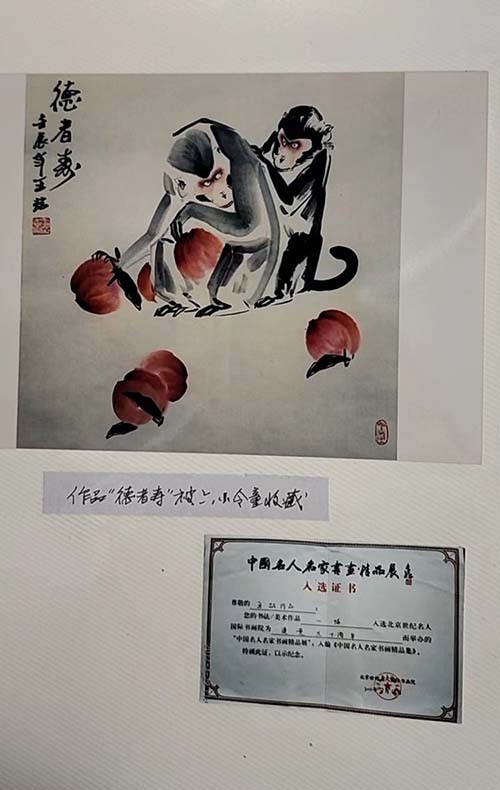 德者寿
壬辰年王
作品"德者寿"被六小令童收藏
中国名人名家书画精品展
入选证书
尊敬的
您的书法/美术作品 一幅 入选北京世纪名人
国际书画院为 而举办的
"中国名人名家书画精品展"，入编《中国名人名家书画精品集》。
特颁此证，以示纪念。